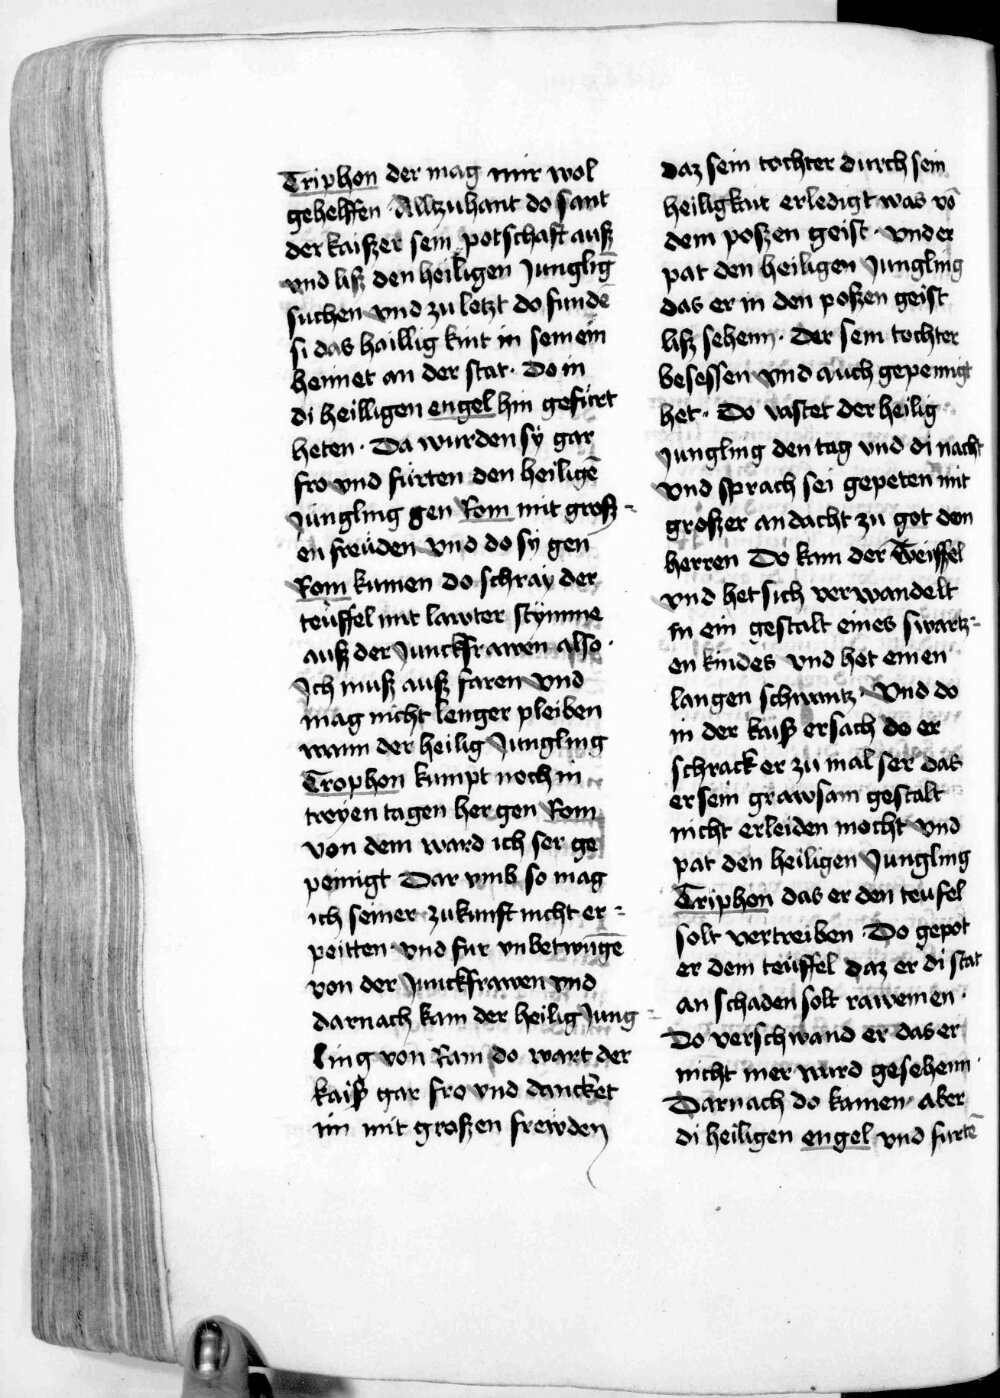 Triphon der mag mir wol
gehelffen · Allzuhant do sant
der kaißer sein potschaft auß
vnd liß den heiligen Junglīg
suchen vnd zu letzt do fundē
si das haillig kint in seim ein
heimet an der stat · Do in
di heilligen engel hin gefürt
heten · Da wurden sÿ gar
fro vnd fürten den heiligē
Jüngling gen Rom mit groß-
en freüden vnd do sy gen
Rom kumen do schray der
teüffel mit lawter stÿmme
auß der Junckfrawen also ·
Ich muß auß faren vnd
mag nicht lenger pleiben
wann der heilig Jungling
Trophon kumpt noch in
treyen tagen her gen Rom
von dem ward ich ser ge
peinigt Dar vmb so mag
ich seiner zukunft nicht er-
peitten vnd fur vnbetwūgē
von der Junckfrawen vnd
darnach kam der heilig Jung-
ling von Ram do wart der
kaiß gar fro vnd dancket
im mit großen frewden
daz sein tochter durch sein
heiligkeit erledigt was vō
dem poßen geist · vnd er
pat den heiligen Jungling
das er in den poßen geist
liß sehenn · Der sein tochter
besessen vnd auch gepeinigt
het · Do vastet der heilig
Jungling den tag vnd di nacht
vnd sprach sei gepeten mit
großer andacht zu got dem
herren Do kam der Teiffel
vnd het sich verwandelt
in ein gestalt eines swartz-
en kindes vnd het einen
langen schwantz · Vnd do
in der kaiß ersach do er
schrack er zu mal ser das
er sein grawsam gestalt
nicht erleiden mocht vnd
pat den heiligen Jungling
Triphon das er den teufel
solt vertreiben · Do gepot
er dem teüffel daz er di stat
an schaden solt rawemen ·
Do verschwand er das er
nicht mer ward gesehenn ·
Darnach do kamen aber
di heiligen engel vnd fürtē